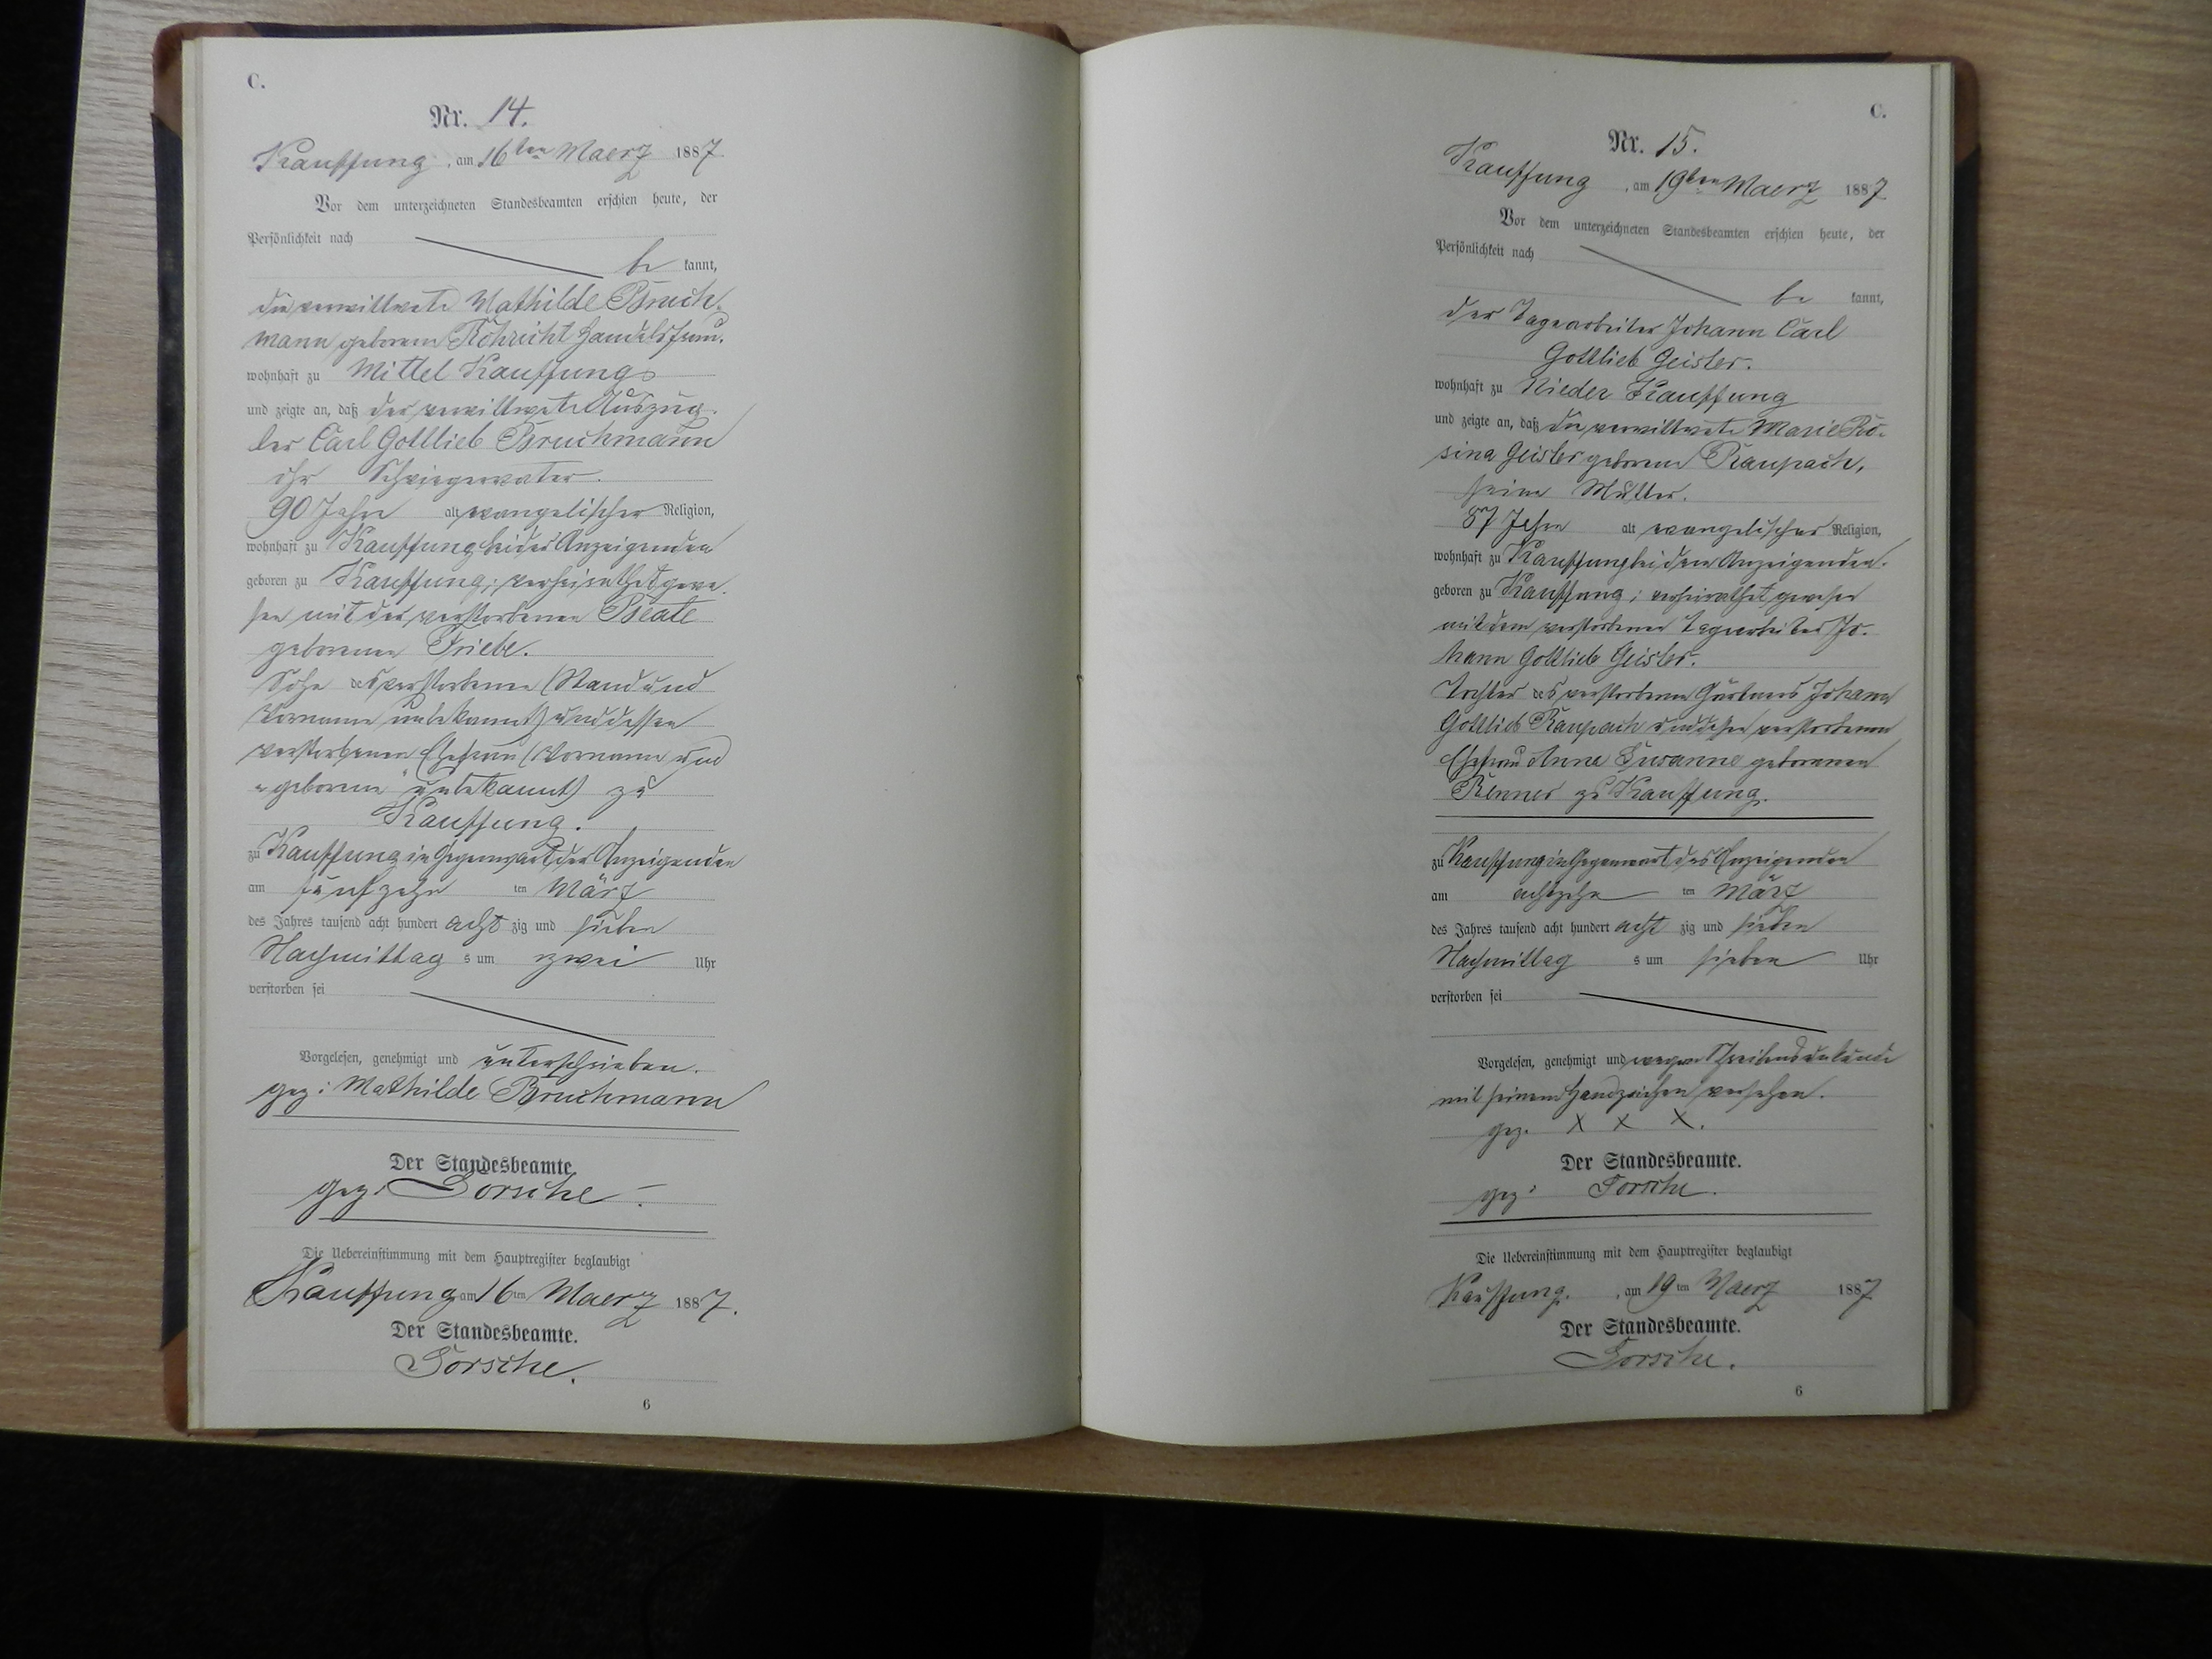 C.
Nr. 14.
Kauffung, am 16ten Maerz 1887.
Vor dem unterzeichneten Standesbeamten erschien heute, der
Persönlichkeit nach
be kannt,
die verwittwete Mathilde Bruch-
mann geborene Röhricht Handelsfrau.
wohnhaft zu Mittel Kauffung
und zeigte an, daß der verwittwete Auszüg-
ler Carl Gottlieb Bruchmann
ihr Schwiegervater.
90 Jahre alt evangelischer Religion,
wohnhaft zu Kauffung bei der Anzeigenden
geboren zu Kauffung; verheirathet gewe-
sen mit der verstorbenen Beate
geborenen Friebe.
Sohn des verstorbenen (Stand und
Vorname unbekannt) und dessen
verstorbenen Ehefrau (Vorname und
"geborene" unbekannt) zu
Kauffung.
zu Kauffung in Gegenwart der Anzeigenden
am fünfzehn ten März
des Jahres tausend acht hundert acht zig und sieben
Nachmittag s um zwei Uhr
verstorben sei
Vorgelesen, genehmigt und unterschrieben.
gez: Mathilde Bruchmann
Der Standesbeamte.
gez: Torsche.
Die Uebereinstimmung mit dem Hauptregister beglaubigt
Kauffung am 16ten Maerz 1887.
Der Standesbeamte.
Torsche.
6
C.
Nr. 15.
Kauffung, am 19ten Maerz 1887
Vor dem unterzeichneten Standesbeamten erschien heute, der
Persönlichkeit nach
be kannt,
der Tagearbeiter Johann Carl
Gottlieb Geisler.
wohnhaft zu Nieder Kauffung
und zeigte an, daß die verwittwete Marie Ro-
sina Geisler geborene Raupach,
seine Mutter.
87 Jahre alt evangelischer Religion,
wohnhaft zu Kauffung bei dem Anzeigenden.
geboren zu Kauffung; verheirathet gewesen
mit dem verstorbenen Tagearbeiter Jo-
hann Gottlieb Geisler.
Tochter des verstorbenen Gärtners Johann
Gottlieb Raupach und dessen verstorbenen
Ehefrau Anna Susanne geborenen
Renner zu Kauffung.
zu Kauffung in Gegenwart des Anzeigenden
am achtzehn ten März
des Jahres tausend acht hundert acht zig und sieben
Nachmittag s um sieben Uhr
verstorben sei
Vorgelesen, genehmigt und wegen Schreibensunkunde
mit seinem Handzeichen versehen.
gez. X X X.
Der Standesbeamte.
gez: Torsche.
Die Uebereinstimmung mit dem Hauptregister beglaubigt
Kauffung, am 19ten Maerz 1887
Der Standesbeamte.
Torsche.
6